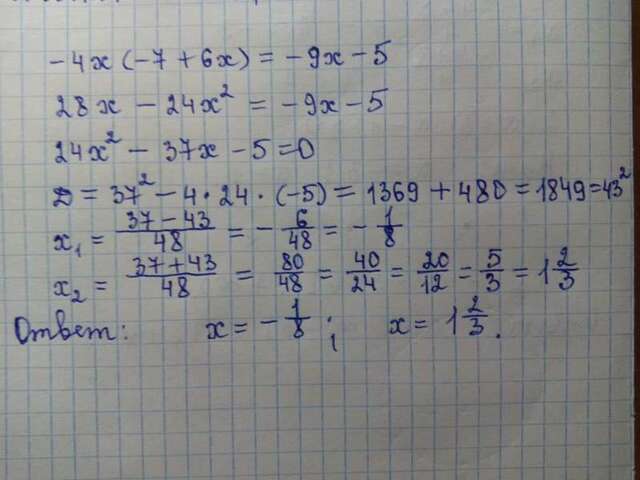 -4x (-7 + 6x) = -9x - 5
28x - 24x² = -9x - 5
24x² - 37x - 5 = 0
D = 37² - 4 · 24 · (-5) = 1369 + 480 = 1849 = 43²
x₁ = (37 - 43)/48 = - 6/48 = - 1/8
x₂ = (37 + 43)/48 = 80/48 = 40/24 = 20/12 = 5/3 = 1 2/3
Ответ: x = - 1/8 ; x = 1 2/3.